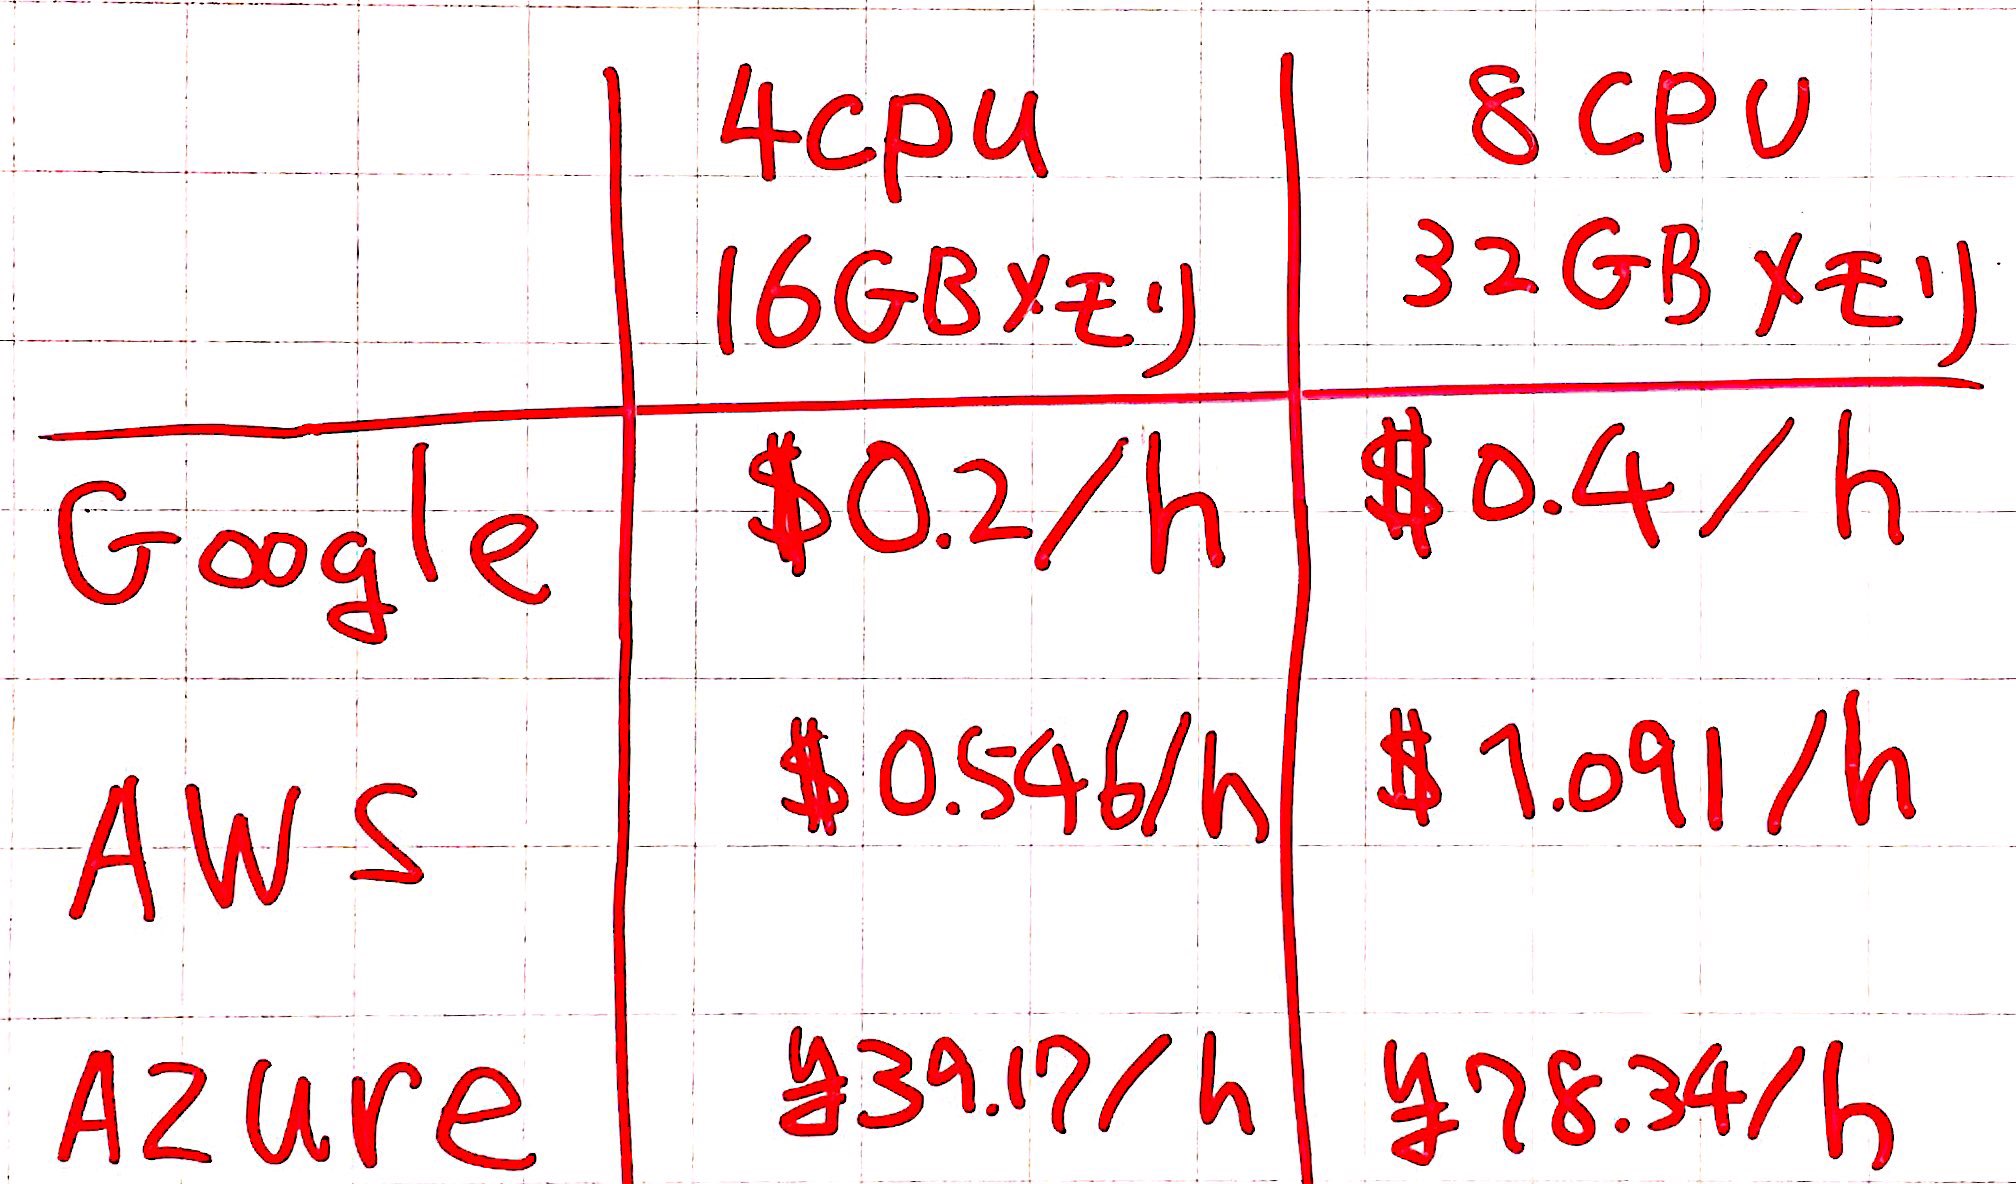 4cpu 8 CPU
16GBメモリ 32GBメモリ
Google $0.2/h $0.4/h
AWS $0.546/h $1.091/h
Azure ¥39.17/h ¥78.34/h